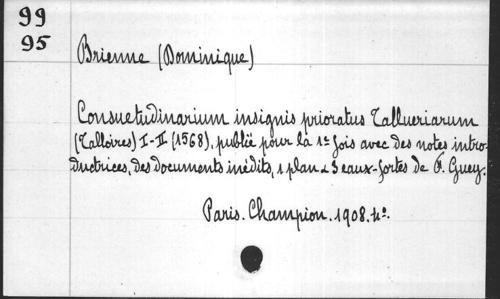 99
95
Brienne (Dominique)
Consuetudinarium insignis prioratus Tallueriarum
(Talloires) I-II (1568), publié pour la 1e fois avec des notes intro-
ductrices, des documents inédits, 1 plan & 3 eaux-fortes de F. Guey.
Paris. Champion. 1908. 4o.